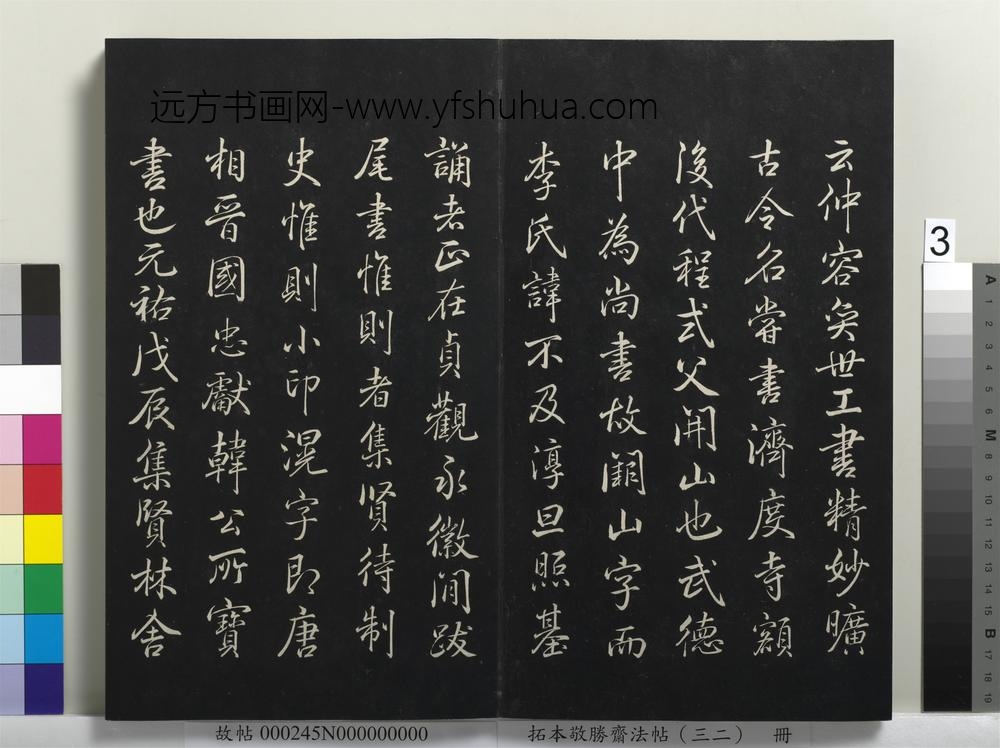 远方书画网-www.yfshuhua.com
云仲容奂世工書精妙曠
古今名嘗書濟度寺額
後代程式父開山也武德
中為尚書故闕山字而
李氏諱不及淳旦照基
誦者正在貞觀永徽間跋
尾書惟則者集賢待制
史惟則小印滉字即唐
相晉國忠獻韓公所寶
書也元祐戊辰集賢林舍
3
A 1 2 3 4 5 M 8 9 10 11 12 13 14 15 B 17 18 19
故帖 000245N000000000
拓本敬勝齋法帖（三二） 冊